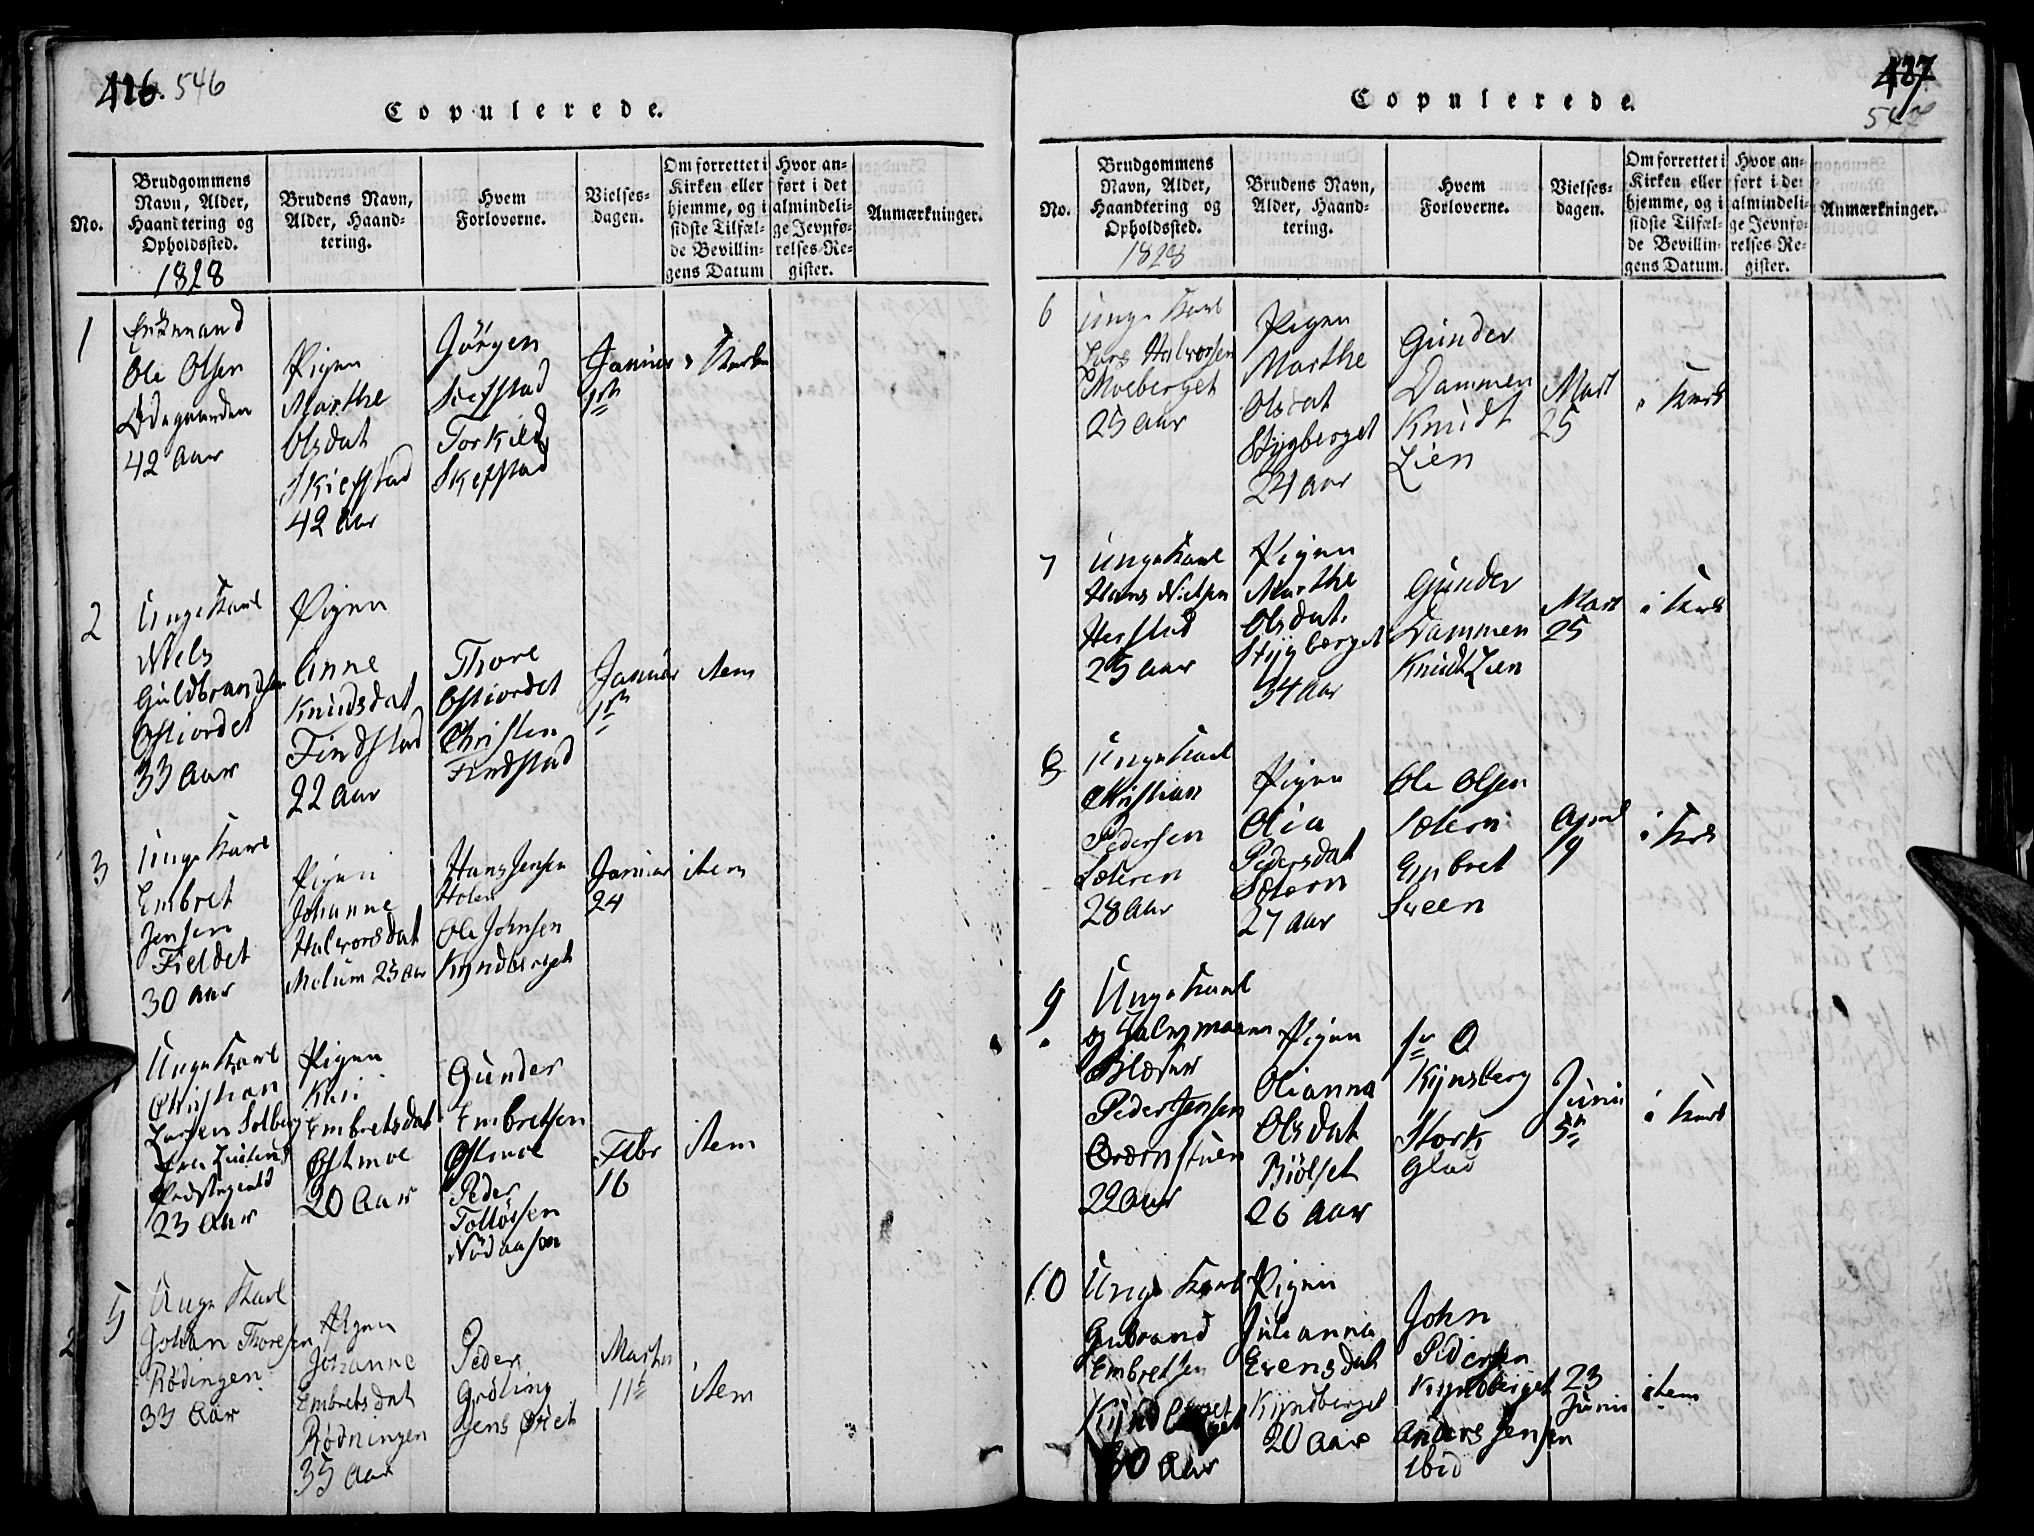 426. 546
Copulerede.
No.
Brudgommens
Navn, Alder,
Haandtering og
Opholdssted.
1828
Brudens Navn,
Alder, Haand-
tering.
Hvem
Forloverne.
Vielses-
dagen.
Om forrettet i
Kirken eller
hjemme, og i
sidste Tilfæl-
de Bevillin-
gens Datum
Hvor an-
ført i det
almindeli-
ge Jevnfø-
relses-Re-
gister.
Anmærkninger.
1
Enkemand
Ole Olsen
Ødegaarden
42 Aar
Pigen
Marthe
Olsdat
Skiefstad
42 Aar
Jörgen
Skefstad
Torkild
Skefstad
Januar
1ste
i Kirken
2
Unge Karl
Niels
Guldbrandsen
Ostiordet
33 Aar
Pigen
Anne
Knudsdat
Findstad
22 Aar
Thore
Ostiordet
Christen
Findstad
Januar
1ste
item
3
Unge Karl
Embret
Jensen
Fieldet
30 Aar
Pigen
Johanne
Halvorsdat
Melum 23 Aar
Hans Jensen
Holen
Ole Johnsen
Kyndberget
Januar
24
item
Unge Karl
Christian
Larsen Solberg
fra
Præstegield
23 Aar
Pigen
Kari
Embretsdat
Ostmoe
20 Aar
Gunder
Embretsen
Ostmoe
Peder
Tollofsen
Nödaasen
Febr
16
item
5
Unge Karl
Johan Thoresen
Rödingen
33 Aar
Pigen
Johanne
Embretsdat
Rödningen
35 Aar
Peder
Gröting
Jens Öiet
Martii
11te
item
427
547
Copulerede.
No.
Brudgommens
Navn, Alder,
Haandtering og
Opholdssted.
1828
Brudens Navn,
Alder, Haand-
tering.
Hvem
Forloverne.
Vielses-
dagen.
Om forrettet i
Kirken eller
hjemme, og i
sidste Tilfæl-
de Bevillin-
gens Datum.
Hvor an-
ført i det
almindeli-
ge Jevnfø-
relses-Re-
gister.
Anmærkninger.
6
Unge Karl
Lars Halvorsen
Moeberget
25 Aar
Pigen
Marthe
Olsdat
Stygberget
24 Aar
Gunder
Dammen
Knudt
Lien
Mart
25
i Kirk
7
Unge Karl
Hans Nielsen
Herstad
25 Aar
Pigen
Marthe
Olsdat.
Stygberget
34 Aar
Gunder
Dammen
Knudt Lien
Mart
25
i Kirk
8
Unge Karl
Christian
Pedersen
Sætern
28 Aar
Pigen
Olia
Pedersdat
Sætern
27 Aar
Ole Olsen
Sætern
Embret
Sveen
April
19
i Kirk
9
Unge Karl
og
Pigen
Peder Jensen
22 Aar
Olianna
Olsdat
Biölset
26 Aar
Kynsberg
Stork
Glad
Junii
5te
i Kirk
10
Unge Karl
Gubrand
Embretsen
Kyndberget
30 Aar
Pigen
Julianna
Evensdat
Kyndberget
20 Aar
John
Pedersen
Kyndberget
Anders Jensen
ibid
23
Junii
item